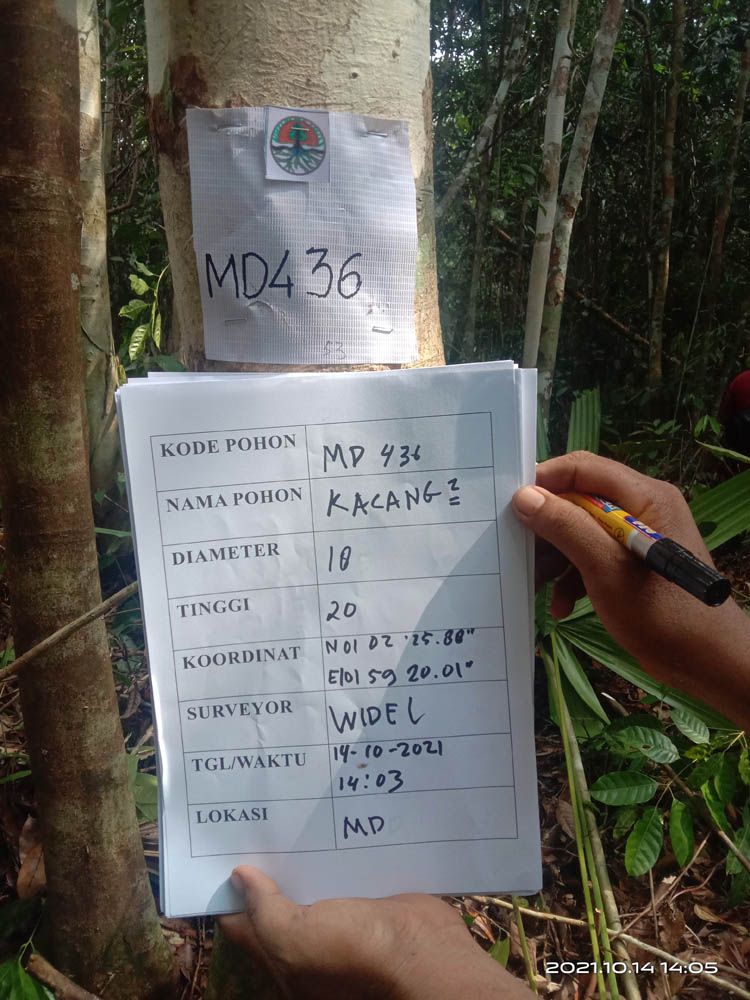 MD436
53
KODE POHON MD 436
NAMA POHON KACANG 2
DIAMETER 18
TINGGI 20
KOORDINAT N01 02 '25.88"
E101 59 20.01"
SURVEYOR WIDEL
TGL/WAKTU 14-10-2021
14:03
LOKASI MD
2021.10.14 14:05